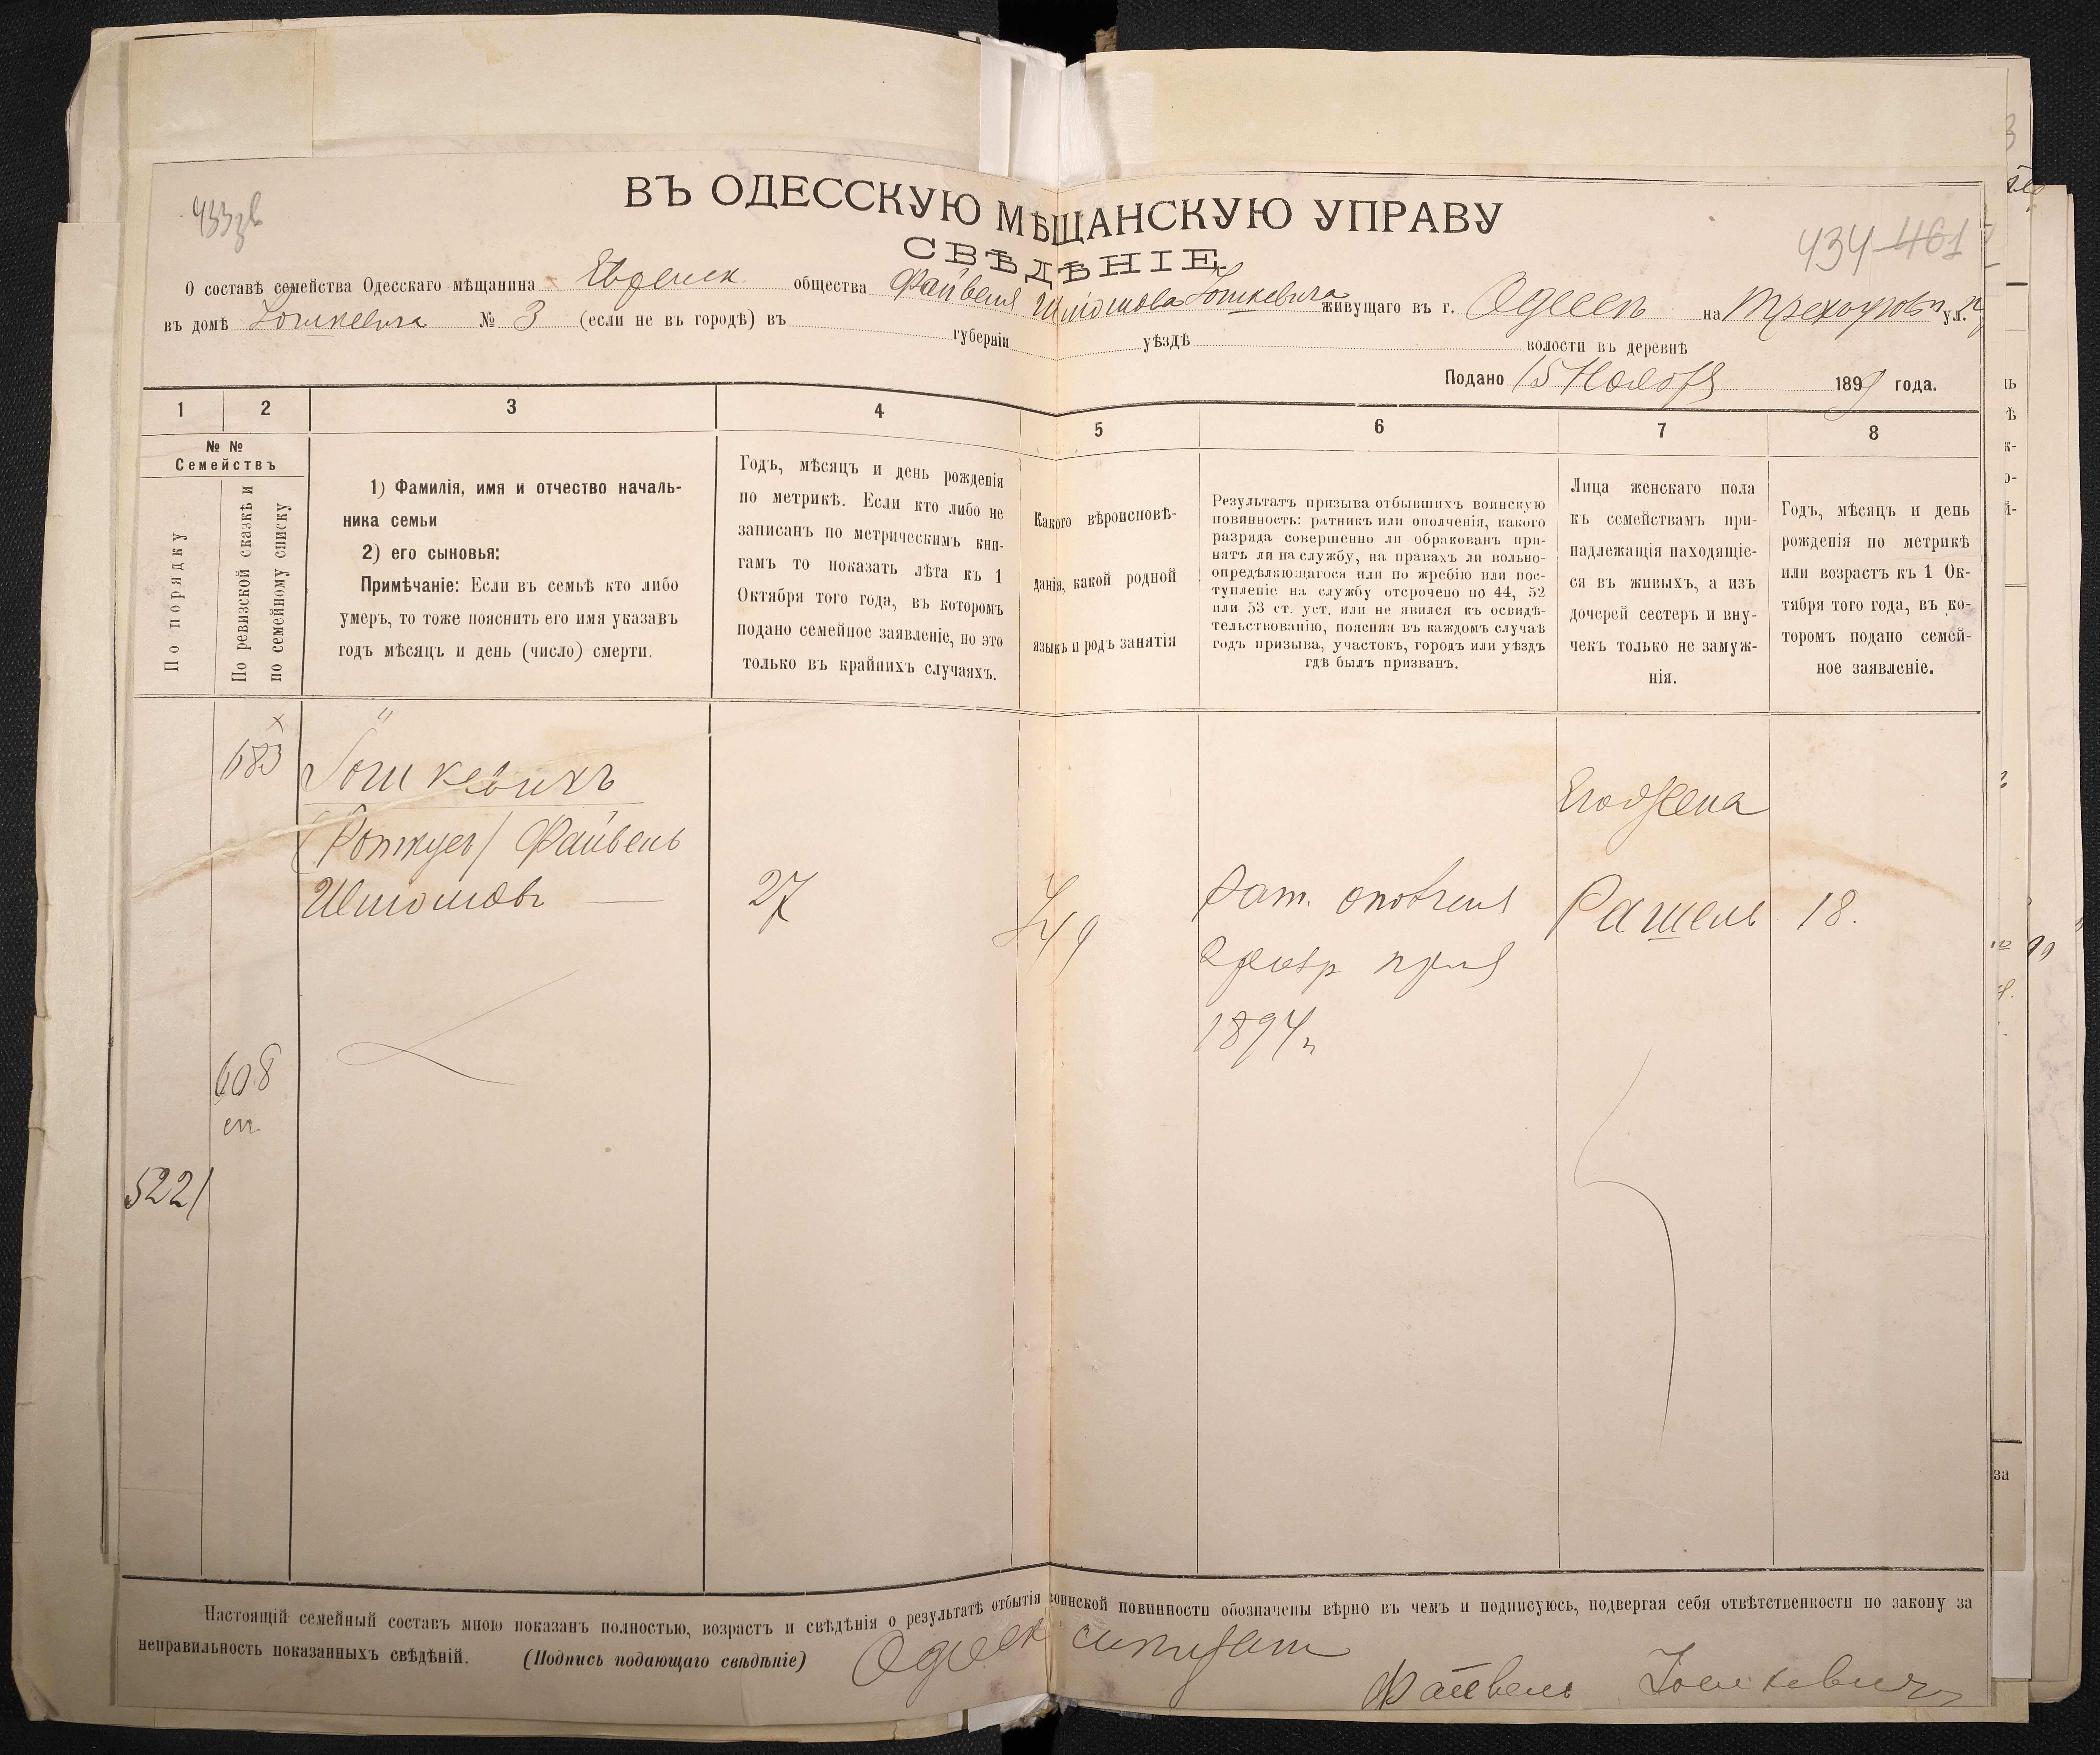 433зв
434 461
ВЪ ОДЕССКУЮ МѢЩАНСКУЮ УПРАВУ
СВѢДѢНІЕ
О составѣ семейства Одесскаго мѣщанина Еврейск общества Файвеля Шліомова Іошкевича живущаго въ г. Одессѣ на ул.
въ домѣ Іошкевича № 3 (если не въ городѣ) въ губерніи уѣздѣ волости въ деревнѣ
Подано 15 Ноября 1899 года.
1 2 3 4 5 6 7 8
№ №
Семействъ
По порядку
По ревизской сказкѣ и
по семейному списку
1) Фамилія, имя и отчество началь-
ника семьи
2) его сыновья:
Примѣчаніе: Если въ семьѣ кто либо
умеръ, то тоже пояснить его имя указавъ
годъ мѣсяцъ и день (число) смерти.
Годъ, мѣсяцъ и день рожденія
по метрикѣ. Если кто либо не
записанъ по метрическимъ кни-
гамъ то показать лѣта къ 1
Октября того года, въ которомъ
подано семейное заявленіе, но это
только въ крайнихъ случаяхъ.
Какого вѣроисповѣ-
данія, какой родной
языкъ и родъ занятія
Результатъ призыва отбывшихъ воинскую
повинность: ратникъ или ополченія, какого
разряда совершенно ли обракованъ при-
нятъ ли на службу, на правахъ ли вольно-
опредѣляющагося или по жребію или пос-
тупленіе на службу отсрочено по 44, 52
или 53 ст. уст. или не явился къ освидѣ-
тельствованію, поясняя въ каждомъ случаѣ
годъ призыва, участокъ, городъ или уѣздъ
гдѣ былъ призванъ.
Лица женскаго пола
къ семействамъ при-
надлежащія находящіе-
ся въ живыхъ, а изъ
дочерей сестеръ и вну-
чекъ только не замуж-
нія.
Годъ, мѣсяцъ и день
рожденія по метрикѣ
или возрастъ къ 1 Ок-
тября того года, въ ко-
торомъ подано семей-
ное заявленіе.
683 Іошкевичъ
Его жена
Файвель
Шліомовъ 27 Рат. ополченія Рашель 18.
2 разр
1894 г
608
5221
Настоящій семейный составъ мною показанъ полностью, возрастъ и свѣдѣнія о результатѣ отбытія воинской повинности обозначены вѣрно въ чемъ и подписуюсь, подвергая себя отвѣтственности по закону за
неправильность показанныхъ свѣдѣній. (Подпись подающаго свѣдѣніе)
Файвель Іошкевичъ